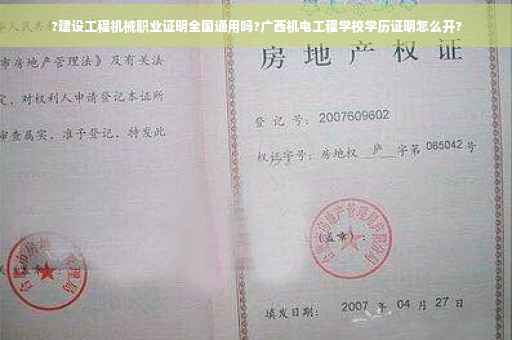 ?建设工程机械职业证明全国通用吗?广西机电工程学校学历证明怎么开?
华人民共
市房地产管理法》及有关法
定，对权利人申请登记本证所
审查属实，准予登记，特发此
房地产权
登记号：2007609602
权证字号：房地权 庐 字第 085042 号
（盖章）：
填发日期： 2007 年 04 月 27 日